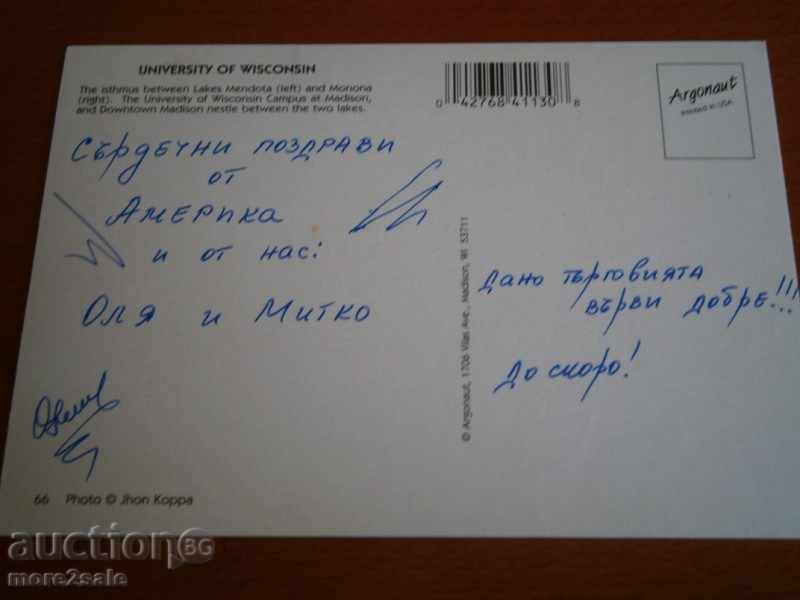 UNIVERSITY OF WISCONSIN
The isthmus between Lakes Mendota (left) and Monona
(right). The University of Wisconsin Campus at Madison,
and Downtown Madison nestle between the two lakes.
0 42768 41130 8
Argonaut
PRINTED IN USA
Сърдечни поздрави
от
Америка
и от нас:
Оля и Митко
Дано търговията
върви добре...!!!
До скоро!
© Argonaut, 1706 Vilas Ave., Madison, WI 53711
66 Photo © Jhon Koppa
auction BG
more2sale